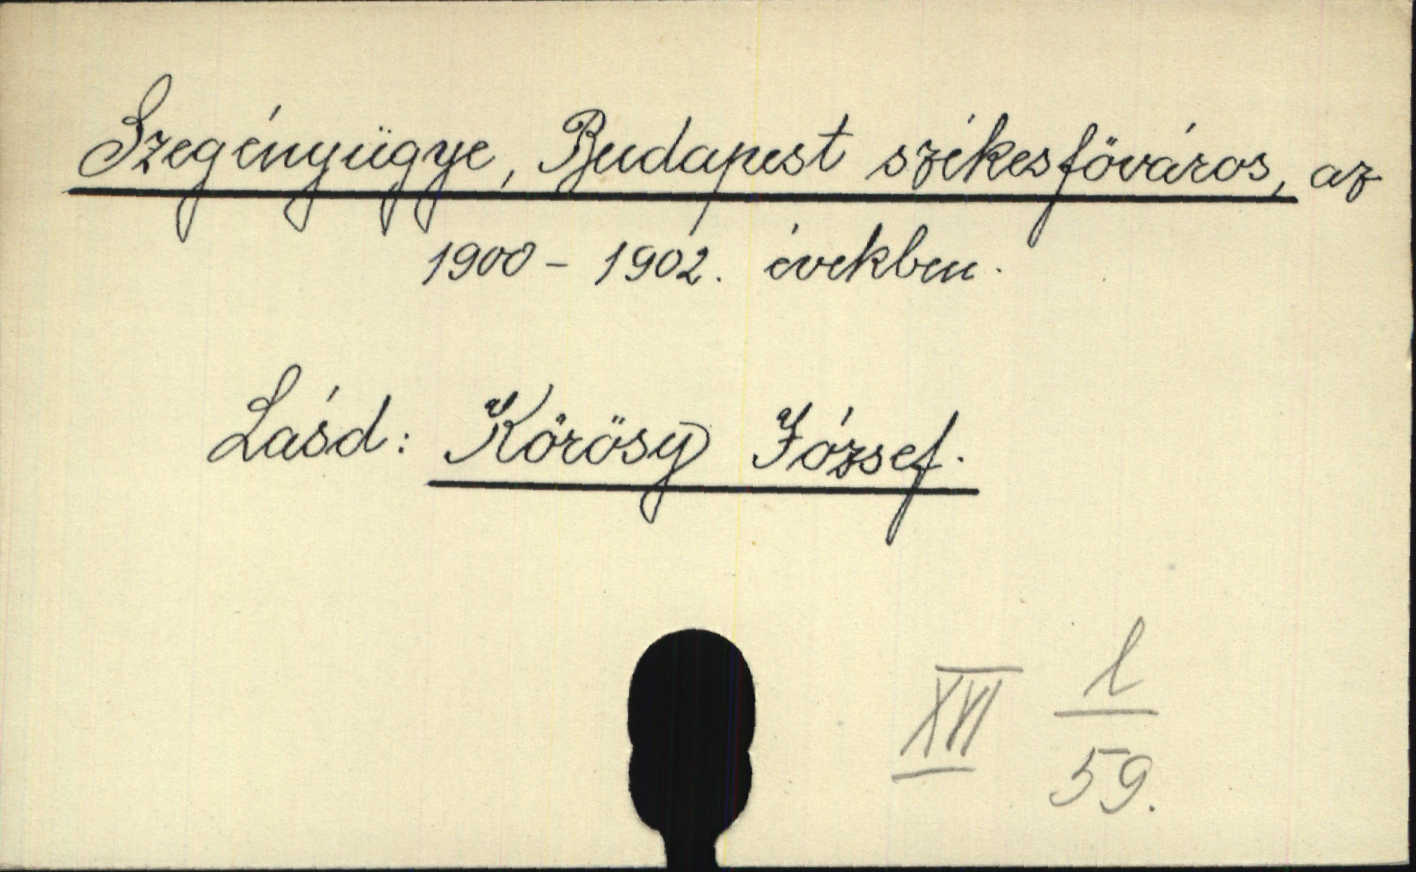 Szegényügye, Budapest székesfőváros, az
1900 - 1902. években.
Lásd: Kőrösy József.
XVI l/59.